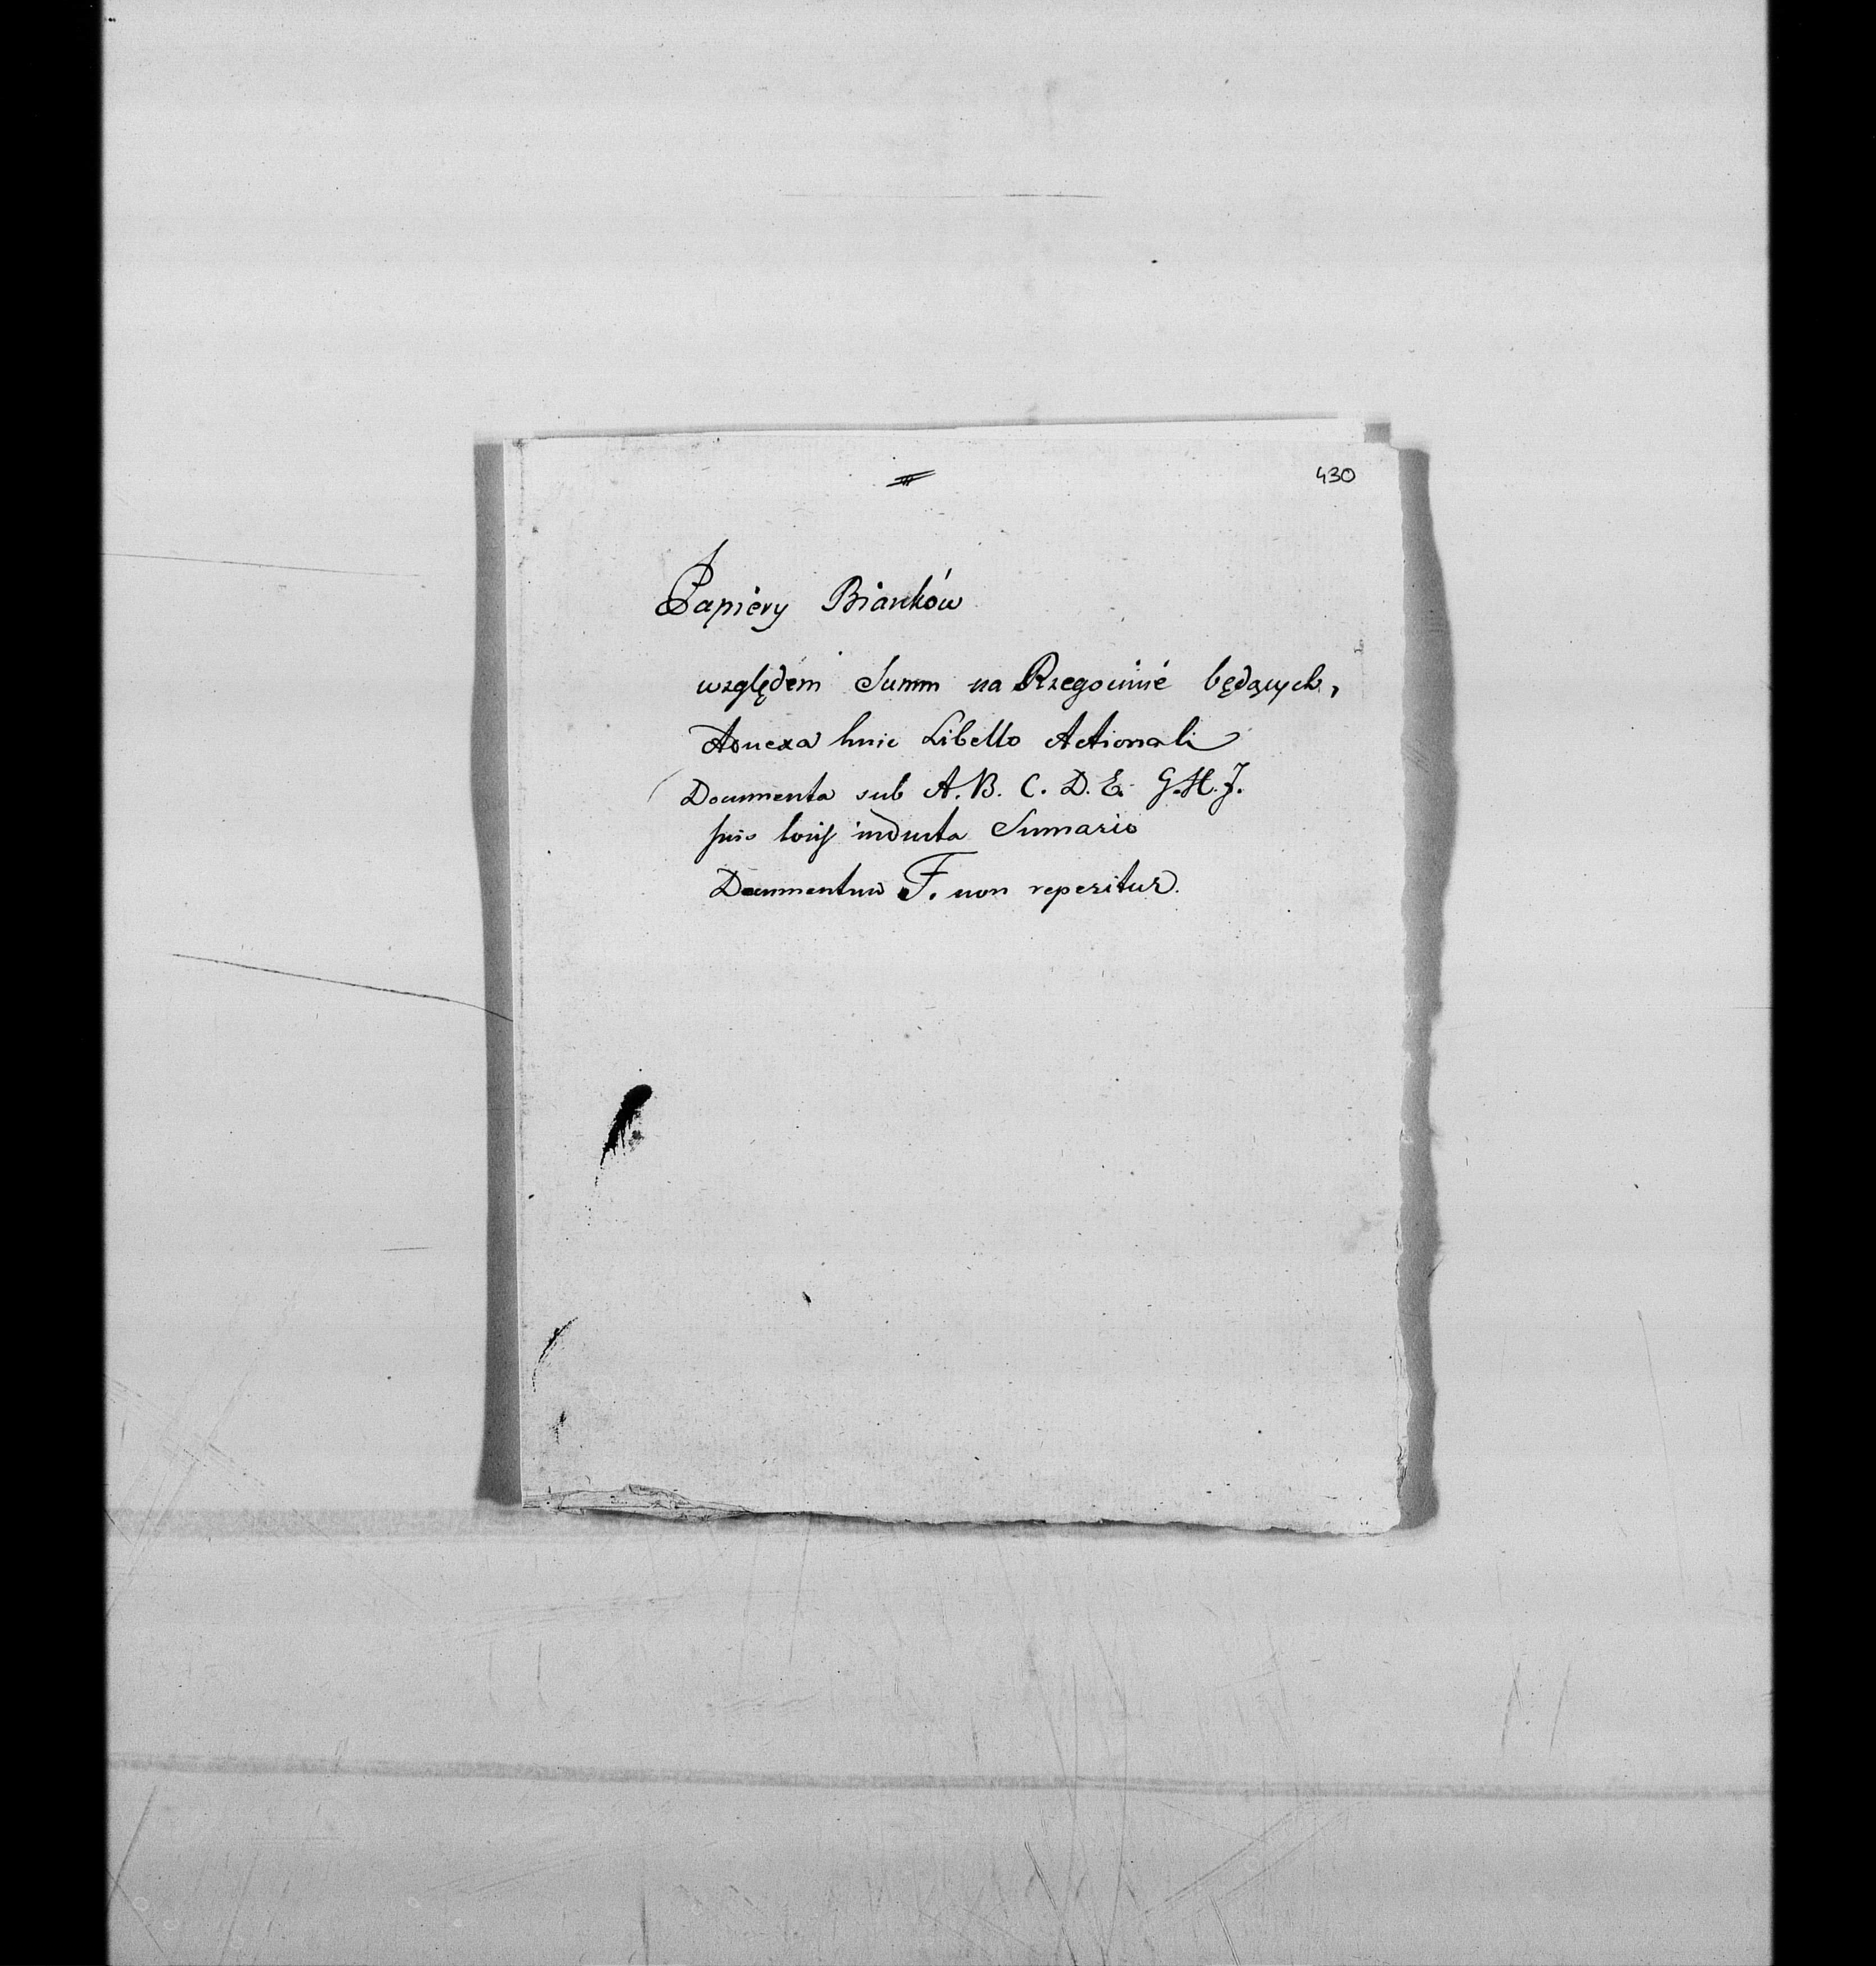 430
Papiéry Bianków
względem Summ na Rzegocinie będących,
Annexa huic Libello Actionali
Documenta sub A. B. C. D. E. G. H. J.
suis locis inducta Sumario
Documentum F. non reperitur.